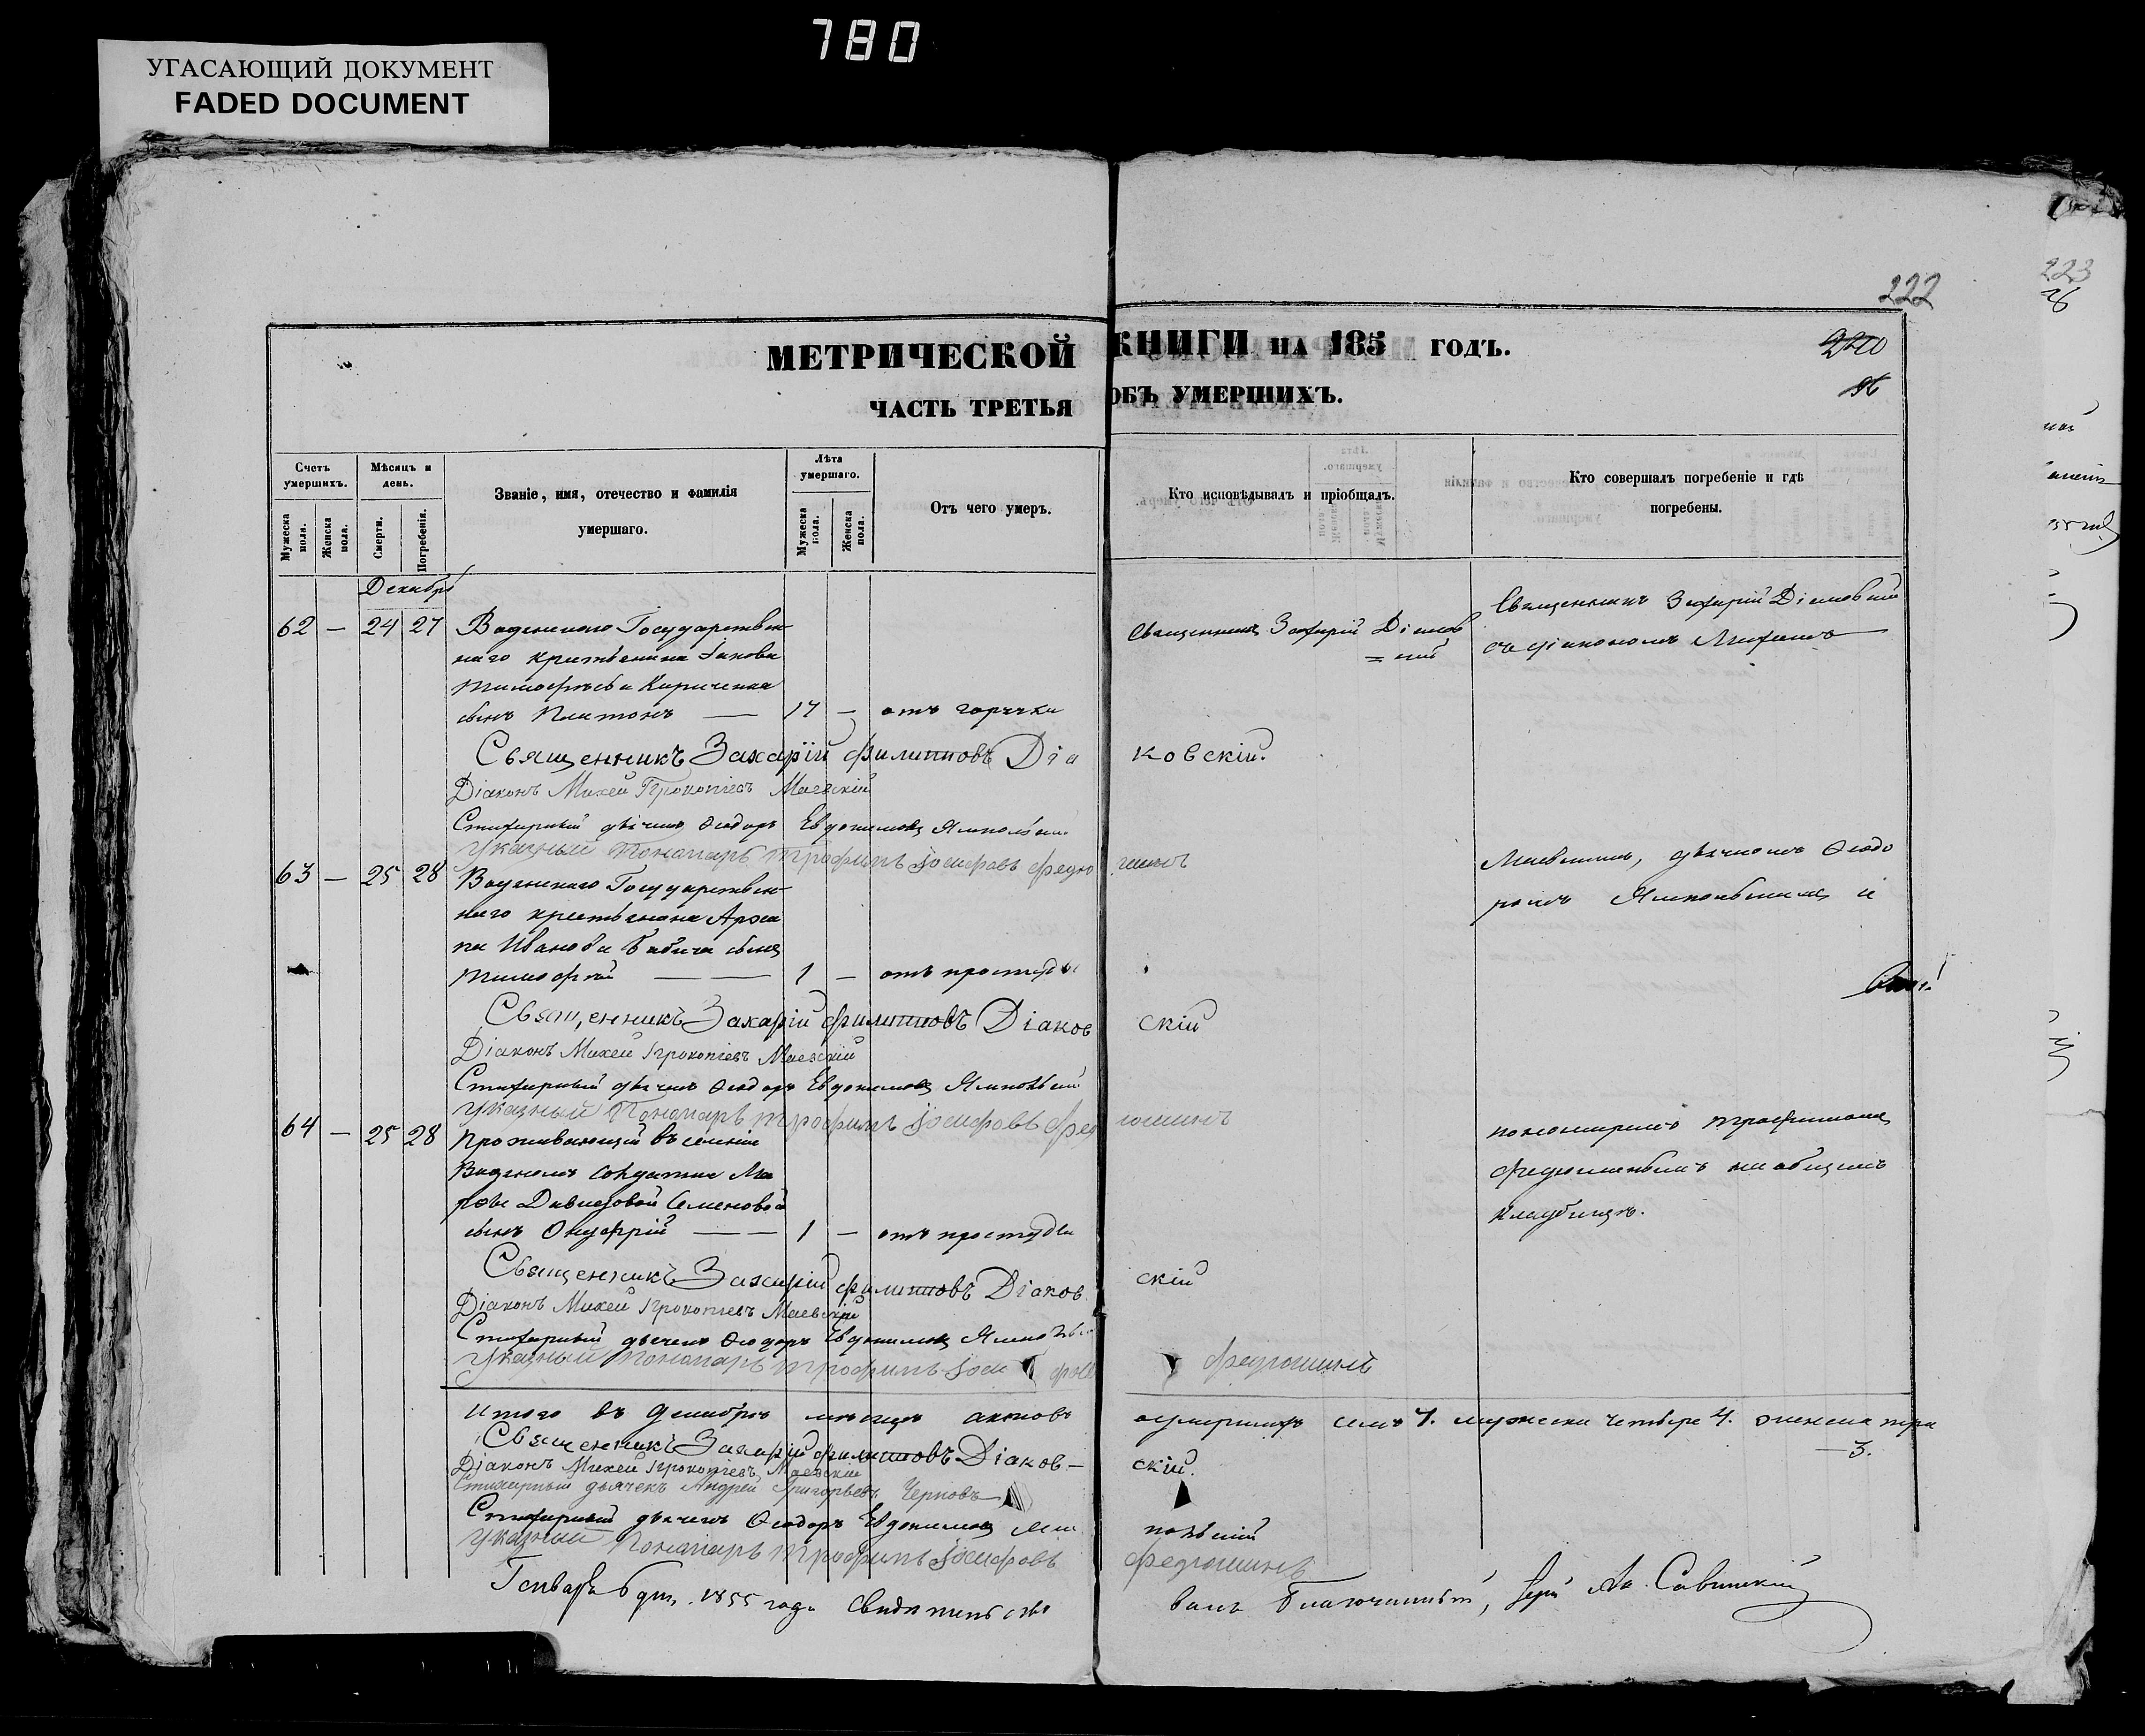 780
УГАСАЮЩИЙ ДОКУМЕНТ
FADED DOCUMENT
222
223
26
МЕТРИЧЕСКОЙ КНИГИ НА 185 ГОДЪ.
220
96
ЧАСТЬ ТРЕТЬЯ ОБЪ УМЕРШИХЪ.
Счетъ умершихъ.
Мужеска пола.
Женска пола.
Мѣсяцъ и день.
Смерти.
Погребенія.
Званіе, имя, отечество и фамилія
умершаго.
Лѣта умершаго.
Мужеска пола.
Женска пола.
Отъ чего умеръ.
Кто исповѣдывалъ и пріобщалъ.
Кто совершалъ погребеніе и гдѣ
погребены.
Декабрь
62 — 24 27 Водянаго Государствен-
наго крестьянина Іакова
Тимофѣева Кириченка
сынъ Платонъ — 17 — отъ горячки
Священникъ Захарій Діаков
=скій
Священникъ Захарій Діаковскій
съ діакономъ Михеемъ
Священникъ Захарій Филипповъ Діаковскій.
Діаконъ Михей Прокопіевъ Маевскій
Стихарный дьячекъ Ѳеодоръ Евдокимовъ Ямпольскій
Указный Пономарь Трофимъ Іосифовъ Федюшинъ
63 — 25 28 Водянаго Государствен-
наго крестьянина Архи
па Иванова Бабича сынъ
Тимофей — — 1 — отъ простуды
Маевскимъ, дьячкомъ Ѳеодо
ромъ Ямпольскимъ и
Священникъ Захарій Филипповъ Діаковскій
Діаконъ Михей Прокопіевъ Маевскій
Стихарный дьячекъ Ѳеодоръ Евдокимовъ Ямпольскій
Указный Пономарь Трофимъ Іосифовъ Федюшинъ
64 — 25 28 Проживающей въ селеніи
Водяномъ солдатки Ма
рфы Давидовой Семеновой
сынъ Онуфрій — — 1 — отъ простуды
пономаремъ Трофимомъ
Федюшинымъ на общемъ
кладбищѣ.
Священникъ Захарій Филипповъ Діаковскій
Діаконъ Михей Прокопіевъ Маевскій
Стихарный дьячекъ Ѳеодоръ Евдокимовъ Ямпольскій
Указный Пономарь Трофимъ Іосифовъ Федюшинъ
Итого въ Декабрѣ мѣсяцѣ актовъ о умершихъ семь 7. мужеска четыре 4. женска три
—3.
Священникъ Захарій Филипповъ Діаков-скій.
Діаконъ Михей Прокопіевъ Маевскій
Стихарный дьячекъ Андрей Григорьевъ Черновъ
Стихарный дьячекъ Ѳеодоръ Евдокимовъ Ямпольскій
Указный Пономарь Трофимъ Іосифовъ Федюшинъ
Генваря 6 дня 1855 года Свидѣтельство
валъ Благочинный, Іерей Савинскій